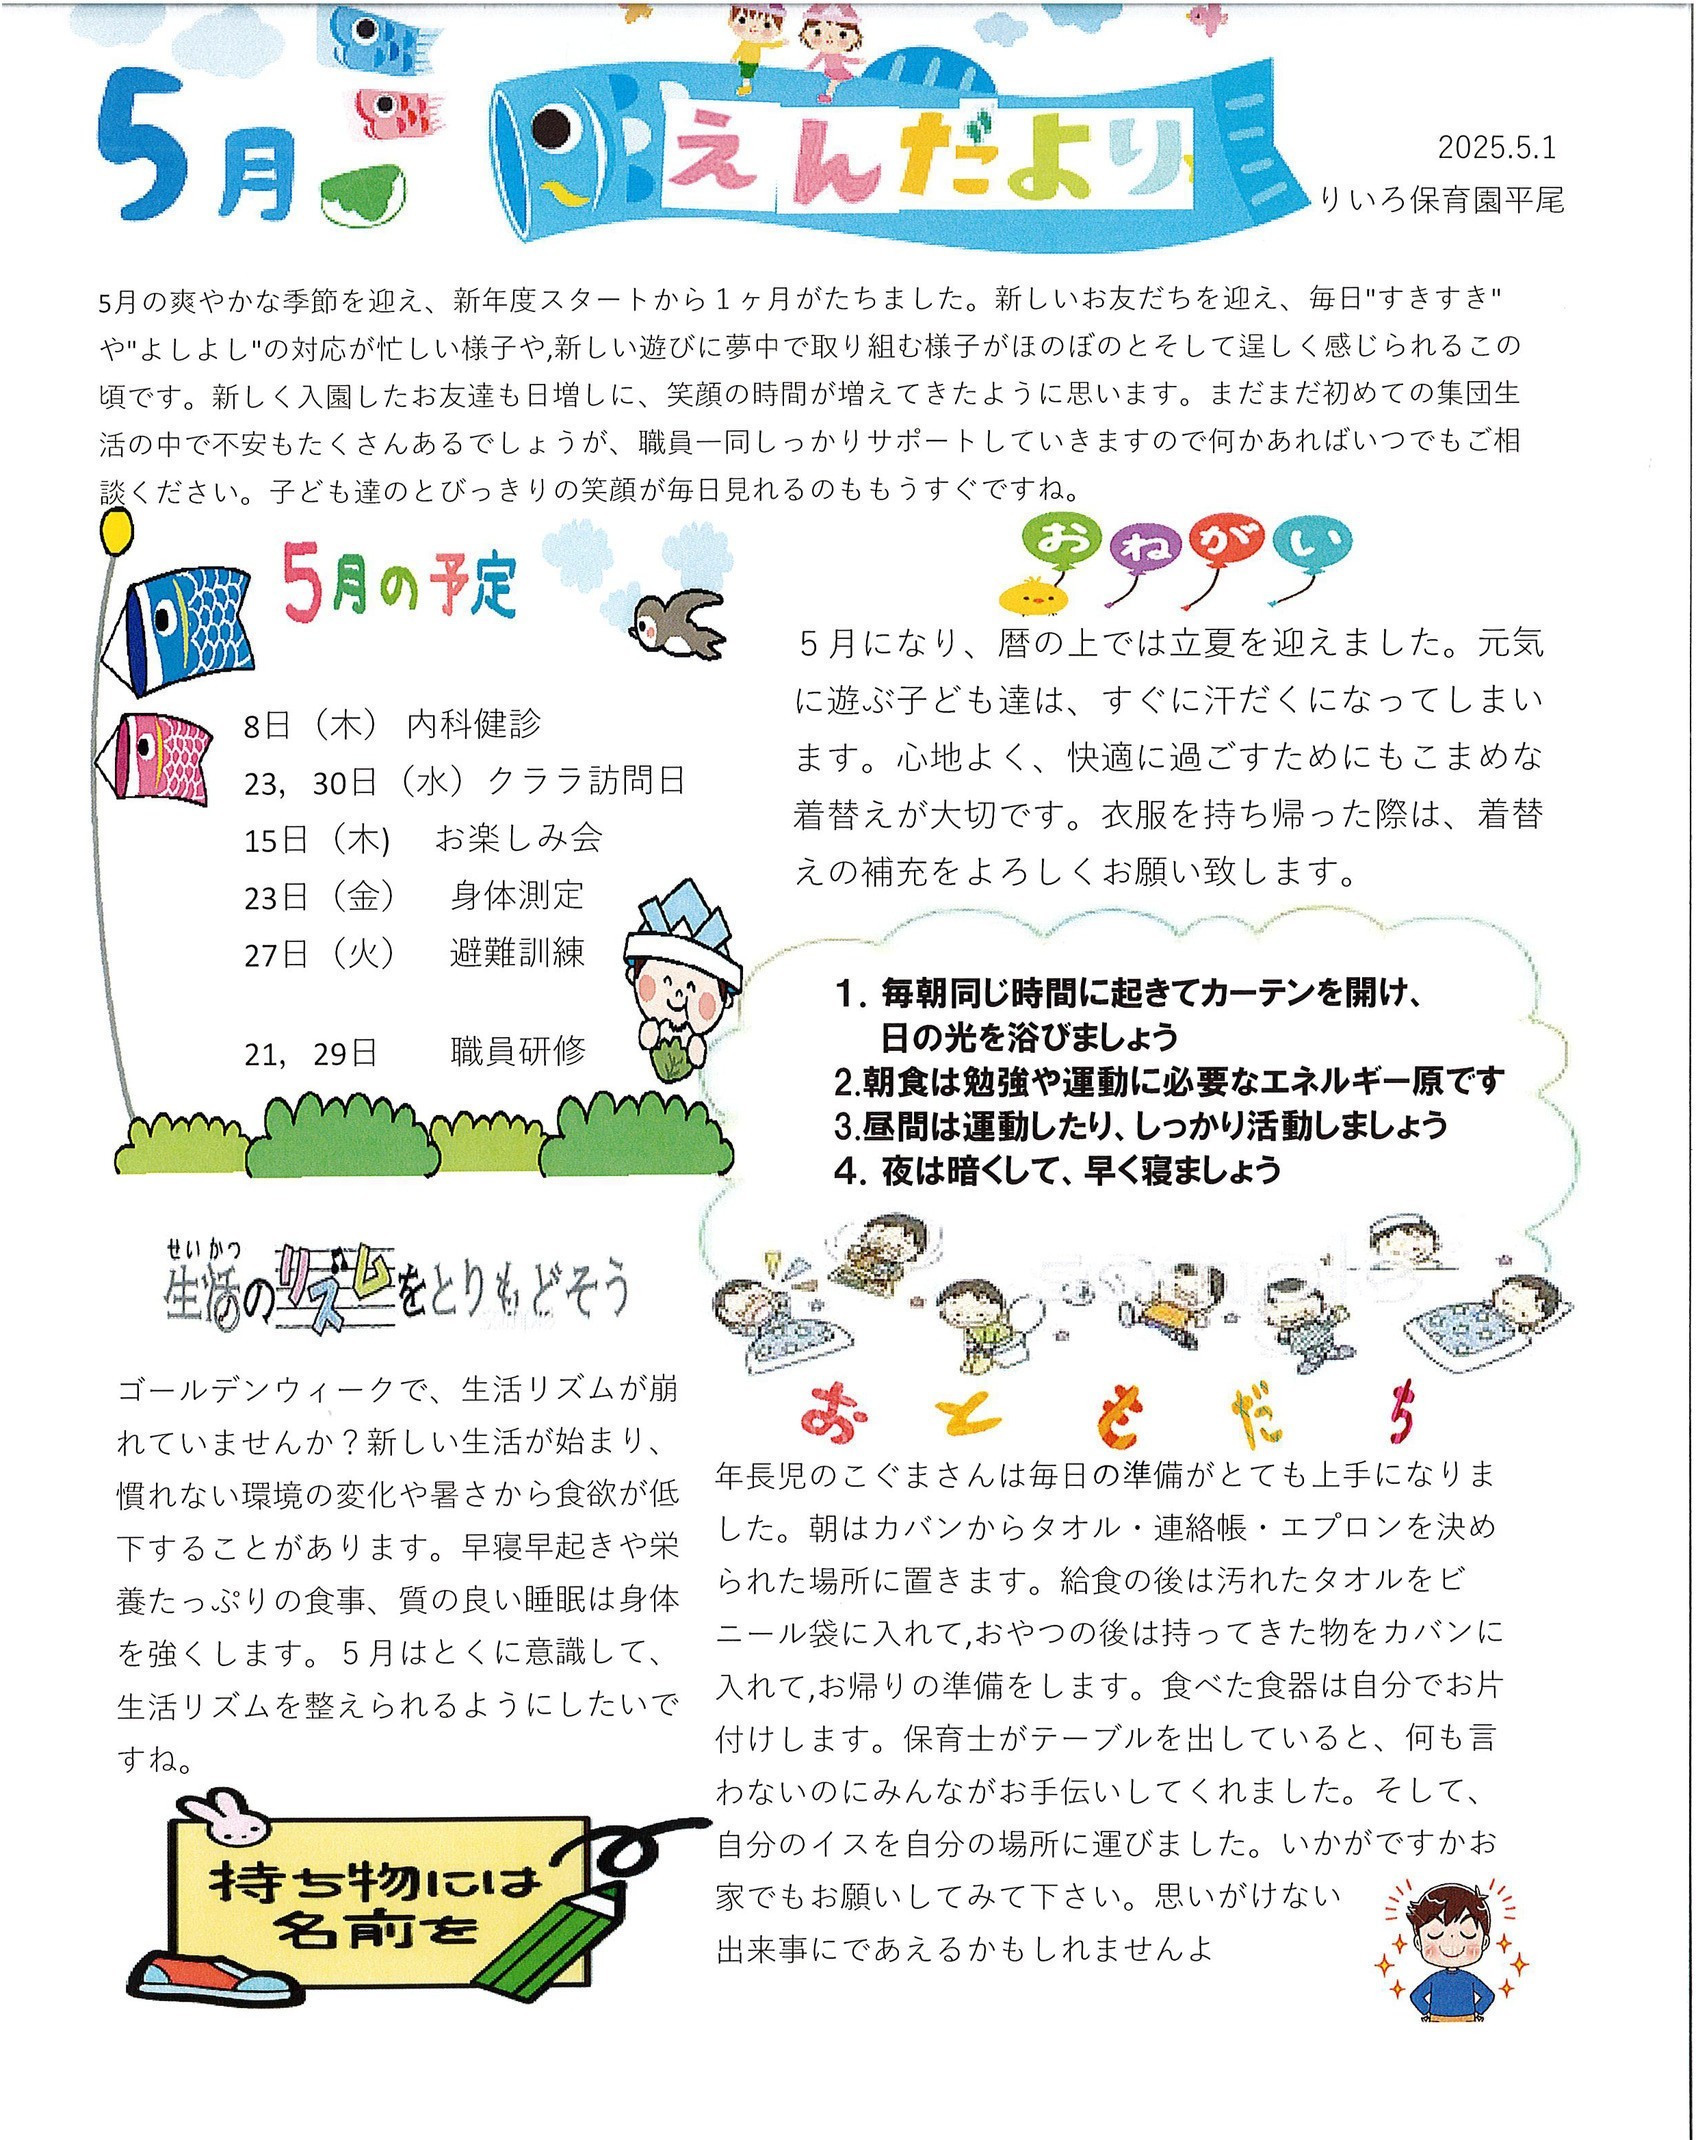 5月
えんだより
2025.5.1
りいろ保育園平尾
5月の爽やかな季節を迎え、新年度スタートから１ヶ月がたちました。新しいお友だちを迎え、毎日"すきすき"
や"よしよし"の対応が忙しい様子や,新しい遊びに夢中で取り組む様子がほのぼのとそして逞しく感じられるこの
頃です。新しく入園したお友達も日増しに、笑顔の時間が増えてきたように思います。まだまだ初めての集団生
活の中で不安もたくさんあるでしょうが、職員一同しっかりサポートしていきますので何かあればいつでもご相
談ください。子ども達のとびっきりの笑顔が毎日見れるのももうすぐですね。
5月の予定
8日（木） 内科健診
23，30日（水）クララ訪問日
15日（木)　お楽しみ会
23日（金）　身体測定
27日（火）　避難訓練
21，29日　　職員研修
おねがい
５月になり、暦の上では立夏を迎えました。元気
に遊ぶ子ども達は、すぐに汗だくになってしまい
ます。心地よく、快適に過ごすためにもこまめな
着替えが大切です。衣服を持ち帰った際は、着替
えの補充をよろしくお願い致します。
1. 毎朝同じ時間に起きてカーテンを開け、
日の光を浴びましょう
2.朝食は勉強や運動に必要なエネルギー原です
3.昼間は運動したり、しっかり活動しましょう
4. 夜は暗くして、早く寝ましょう
せいかつ
生活のリズムをとりもどそう
ゴールデンウィークで、生活リズムが崩
れていませんか？新しい生活が始まり、
慣れない環境の変化や暑さから食欲が低
下することがあります。早寝早起きや栄
養たっぷりの食事、質の良い睡眠は身体
を強くします。５月はとくに意識して、
生活リズムを整えられるようにしたいで
すね。
持ち物には
名前を
おともだち
年長児のこぐまさんは毎日の準備がとても上手になりま
した。朝はカバンからタオル・連絡帳・エプロンを決め
られた場所に置きます。給食の後は汚れたタオルをビ
ニール袋に入れて,おやつの後は持ってきた物をカバンに
入れて,お帰りの準備をします。食べた食器は自分でお片
付けします。保育士がテーブルを出していると、何も言
わないのにみんながお手伝いしてくれました。そして、
自分のイスを自分の場所に運びました。いかがですかお
家でもお願いしてみて下さい。思いがけない
出来事にであえるかもしれませんよ